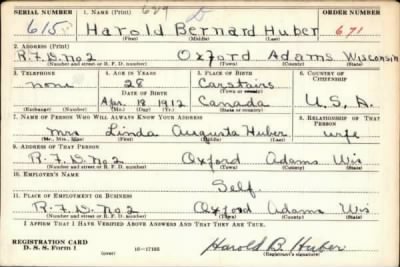 SERIAL NUMBER 1. NAME (Print) ORDER NUMBER
615 Harold Bernard Huber 671
(First) (Middle) (Last)
2. ADDRESS (Print)
R.F.D. No 2 Oxford Adams Wisconsin
(Number and street or R. F. D. number) (Town) (County) (State)
3. TELEPHONE 4. AGE IN YEARS 5. PLACE OF BIRTH 6. COUNTRY OF CITIZENSHIP
none 28 Carstairs
DATE OF BIRTH (Town or county)
Apr. 18 1912 Canada U.S.A.
(Exchange) (Number) (Mo.) (Day) (Yr.) (State or country)
7. NAME OF PERSON WHO WILL ALWAYS KNOW YOUR ADDRESS 8. RELATIONSHIP OF THAT PERSON
Mrs Linda Augusta Huber wife
(Mr., Mrs., Miss) (First) (Middle) (Last)
9. ADDRESS OF THAT PERSON
R.F.D. No 2 Oxford Adams Wis
(Number and street or R. F. D. number) (Town) (County) (State)
10. EMPLOYER'S NAME
Self.
11. PLACE OF EMPLOYMENT OR BUSINESS
R.F.D. No 2 Oxford Adams Wis
(Number and street or R. F. D. number) (Town) (County) (State)
I AFFIRM THAT I HAVE VERIFIED ABOVE ANSWERS AND THAT THEY ARE TRUE.
REGISTRATION CARD
D. S. S. Form 1 16-17105 Harold B. Huber
(Registrant's signature)